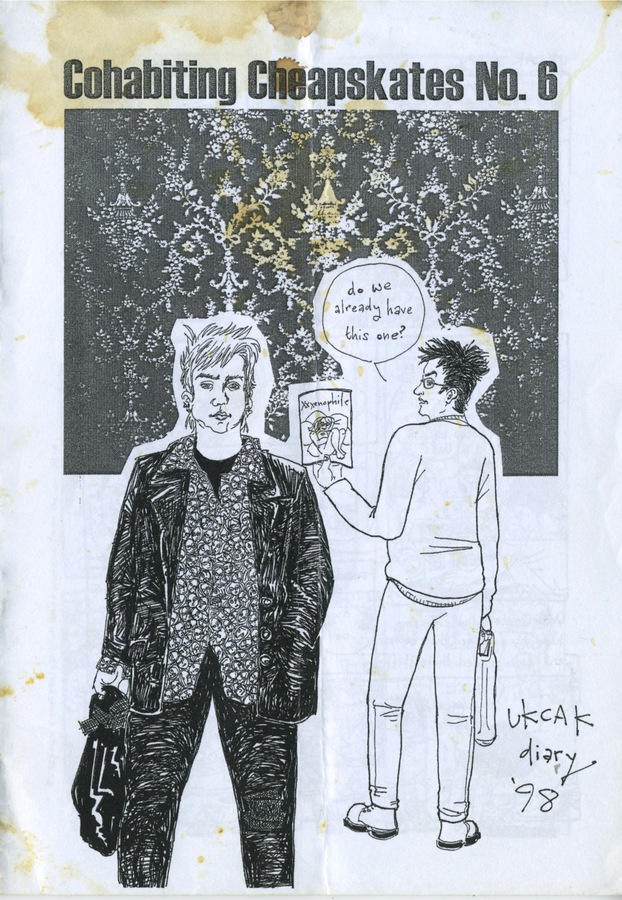 Cohabiting Cheapskates No. 6
do we
already have
this one?
Xxxenophile
UKCAK
diary
'98